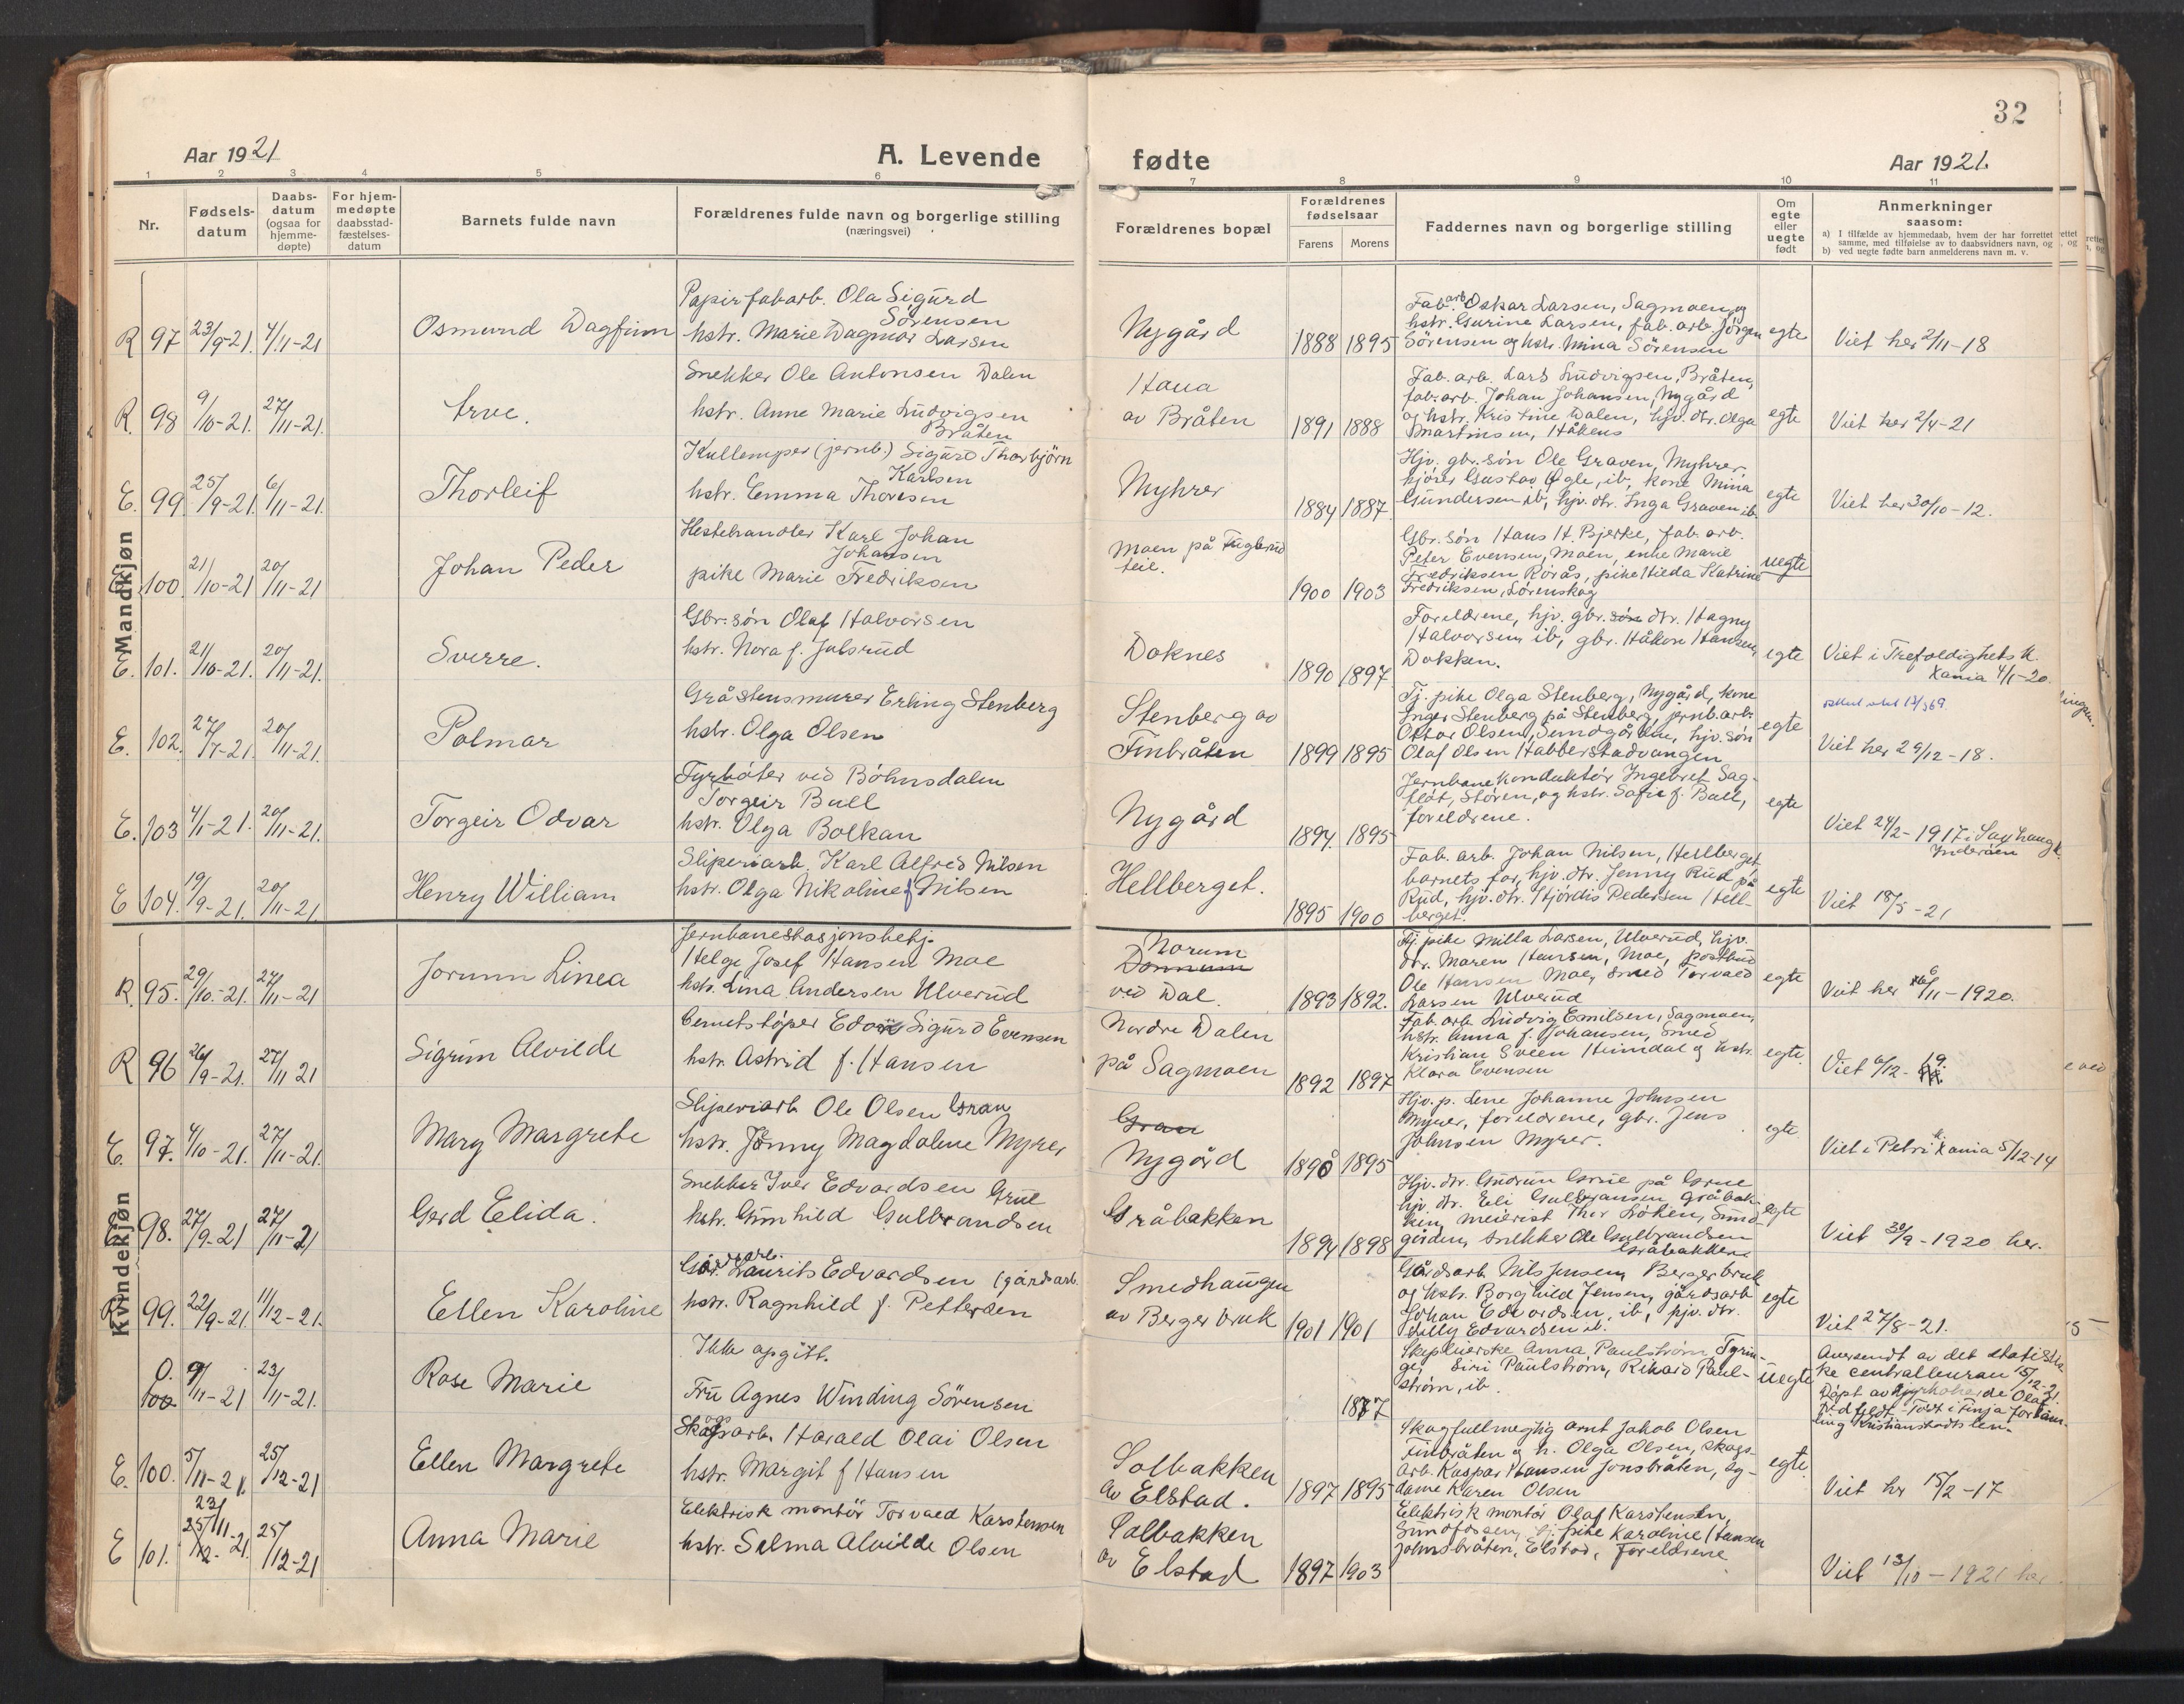 32
Aar 1921
A. Levende fødte
Aar 1921.
1 2 3 4 5 6 7 8 9 10 11
Nr.
Fødsels-
datum
Daabs-
datum
(ogsaa for
hjemme-
døpte)
For hjem-
medøpte
daabsstad-
fæstelses-
datum
Barnets fulde navn
Forældrenes fulde navn og borgerlige stilling
(næringsvei)
Forældrenes bopæl
Forældrenes
fødselsaar
Farens Morens
Faddernes navn og borgerlige stilling
Om
egte
eller
uegte
født
Anmerkninger
saasom:
a) I tilfælde av hjemmedaab, hvem der har forrettet
samme, med tilføielse av to daabsvidners navn, og
b) ved uegte fødte barn anmelderens navn m. v.
Mandkjøn
R 97 23/9-21. 4/11-21
Osmund Dagfinn
Papirfabarb. Ola Sigurd
Sörensen
hstr. Marie Dagmar Larsen
Nygård
1888 1895
Fab.arb. Oskar Larsen, Sagmoen, og
hstr. Gurine Larsen, fab. arb. Jörgen
Sörensen og hstr. Mina Sörensen
egte
Viet her 2/11-18
R. 98 9/10-21. 27/11-21.
Arve.
Snekker Ole Antonsen Dalen
hstr. Anne Marie Ludvigsen
Bråten
Haua
av Bråten
1891 1888
Fab. arb. Lars Ludvigsen, Bråten,
fab. arb. Johan Johansen, Nygård
og hstr. Kristine Dalen, hjv. dtr. Olga
Martinsen, Håkens
egte
Viet her 2/4-21
E. 99. 25/9-21. 6/11-21.
Thorleif
Kullemper (jernb.) Sigurd Thorbjörn
Karlsen
hstr. Emma Thoresen
Myhrer
1884 1887.
Hjv. gbr. sön Ole Graven, Myhrer,
kjörer Gustav Ögle, ib, kone Mina
Gundersen ib, hjv. dtr. Inga Graven ib.
egte
Viet her 30/10-12.
E. 100. 21/10-21 20/11-21
Johan Peder
Hestehandler Karl Johan
Johansen
pike Marie Fredriksen
Moen på Fuglerud
teie.
1900 1903
Gbr. sön Hans H. Bjerke, fab. arb.
Peter Evensen, Moen, enke Marie
Fredriksen Rörås, pike Hilda Katrine
Fredriksen, Lörenskog
uegte
E. 101. 21/10-21. 20/11-21.
Sverre.
Gbr. sön Olaf Halvorsen
hstr. Nora f. Julsrud
Doknes
1890 1897
Foreldrene, hjv. gbr. sön dtr. Hagny
Halvorsen, ib, gbr. Håkon Hansen,
Dokken.
egte
Viet i Trefoldighets k.
Kania 4/1-20.
E. 102. 27/7-21. 20/11-21.
Polmar
Gråstensmurer Erling Stenberg
hstr. Olga Olsen
Stenberg av
Finbråten
1899 1895
Tj. pike Olga Stenberg, Nygård, kone
Inger Stenberg på Stenberg, jernb.arb.
Oskar Olsen, Sundgårdene, hjv. sön
Olaf Olsen Habberstadvangen
egte
Viet her 29/12-18.
E. 103 4/1-21. 20/11-21.
Torgeir Odvar
Fyrböter ved Böhnsdalen
Torgeir Bull
hstr. Olga Bolkan
Nygård
1894. 1895
Jernbanekonduktör Ingebret Sag-
flöt, Stören, og hstr. Sofie f. Bull,
foreldrene.
egte
Viet 24/2-1917 i Saxhaug k.
Inderöen
E 104. 19/9-21. 20/11-21
Henry William
Sliperiarb. Karl Alfred Nilsen
hstr. Olga Nikoline f Nilsen
Hellberget.
1895 1900
Fab. arb. Johan Nilsen, Hellberget,
barnets far, hjv. dtr. Jenny Rud på
Rud, hjv. dtr. Hjördis Pedersen Hell-
berget.
egte
Viet 18/5-21
Kvindekjøn
R. 95. 29/10-21. 27/11-21
Jorunn Linea
Jernbanestasjonsbetj.
Helge Josef Hansen Moe
hstr. Lina Andersen Ulverud
Norum
Donnum
ved Dal.
1893 1892.
Tj. pike Milla Larsen, Ulverud, hjv.
dtr. Maren Hansen, Moe, postbud
Ole Hansen Moe, smed Torvald
Larsen Ulverud
egte
Viet her /11-1920.
R 96 26/9-21. 27/11 21
Sigrun Alvilde
Cemetstöper Edvin Sigurd Evensen
hstr. Astrid f. Hansen
Nordre Dalen
på Sagmoen
1892 1897
Fab. arb. Ludvig Emilsen, Sagmoen,
hstr. Anna f. Johansen, smed
Kristian Sveen Heimdal og hstr.
Klara Evensen
egte.
Viet 6/12-19.
E. 97. 4/10-21. 27/11-21.
Mary Margrete
Sliperiarb. Ole Olsen Gran
hstr. Jenny Magdalene Myrer
Gran
Nygård
1890 1895
Hjv. p. Lene Johanne Johnsen
Myrer, foreldrene, gbr. Jens
Johnsen Myrer.
egte.
Viet i Petri k. Kania 5/12-14
E. 98. 27/9-21 27/11-21
Gerd Elida.
Snekker Iver Edvardsen Grue
hstr. Gunhild Gulbrandsen
Gråbakken
1894 1898
Hjv. dtr. Gudrun Grue på Grue
hjv. dtr. Eli Gulbransen Gråbak-
ken, meierist Thor Löken, Sund-
gården, snekker Ole Gulbrandsen
Gråbakken
egte
Viet 30/9-1920 her.
R. 99. 22/9-21 11/12-21.
Ellen Karoline
Gårdsarb. Laurits Edvardsen (gårdsarb.
hstr. Ragnhild f. Pettersen
Smedhaugen
av Berger bruk
1901 1901
Gårdsarb. Nils Jensen, Berger bruk
og hstr. Borghild Jensen, gårdsarb
Johan Edvardsen, ib, hjv. dtr.
Lilly Edvardsen ib.
egte
Viet 27/8-21.
O. 100 9/11-21 23/11-21.
Rose Marie
Ikke opgitt.
Fru Agnes Winding Sörensen
1877
Anna Paulström Tyrin-
ge, Siri Paulström, Rikard Paul-
ström, ib.
uegte
Oversendt av det statistis-
ke centralbureau 15/12-21.
Döpt av kyrkoherde Olaf
Lidfeldt. Född i Finja försam-
ling Kristianstads len.
E. 100. 5/11-21. 25/12-21
Ellen Margrete
Skogsarb. Harald Olai Olsen
hstr. Margit f Hansen
Solbakken
av Elstad.
1897 1895
Skogfullmegtig Arnt Jakob Olsen
Finbråten og h. Olga Olsen, skogs-
arb. Kaspar Hansen Jonsbråten, sy-
dame Karen Olsen
egte.
Viet hr 15/2-17
E 101. 23/11 25/12-21. 25/12-21
Anna Marie
Elektrisk montör Torvald Karstensen
hstr. Selma Alvilde Olsen
Solbakken
av Elstad
1897 1903
Elektrisk montör Olaf Karstensen,
Sundfossen, tj. pike Karoline Hansen
Johnsbråten, Elstad, Foreldrene
Viet 13/10-1921 her